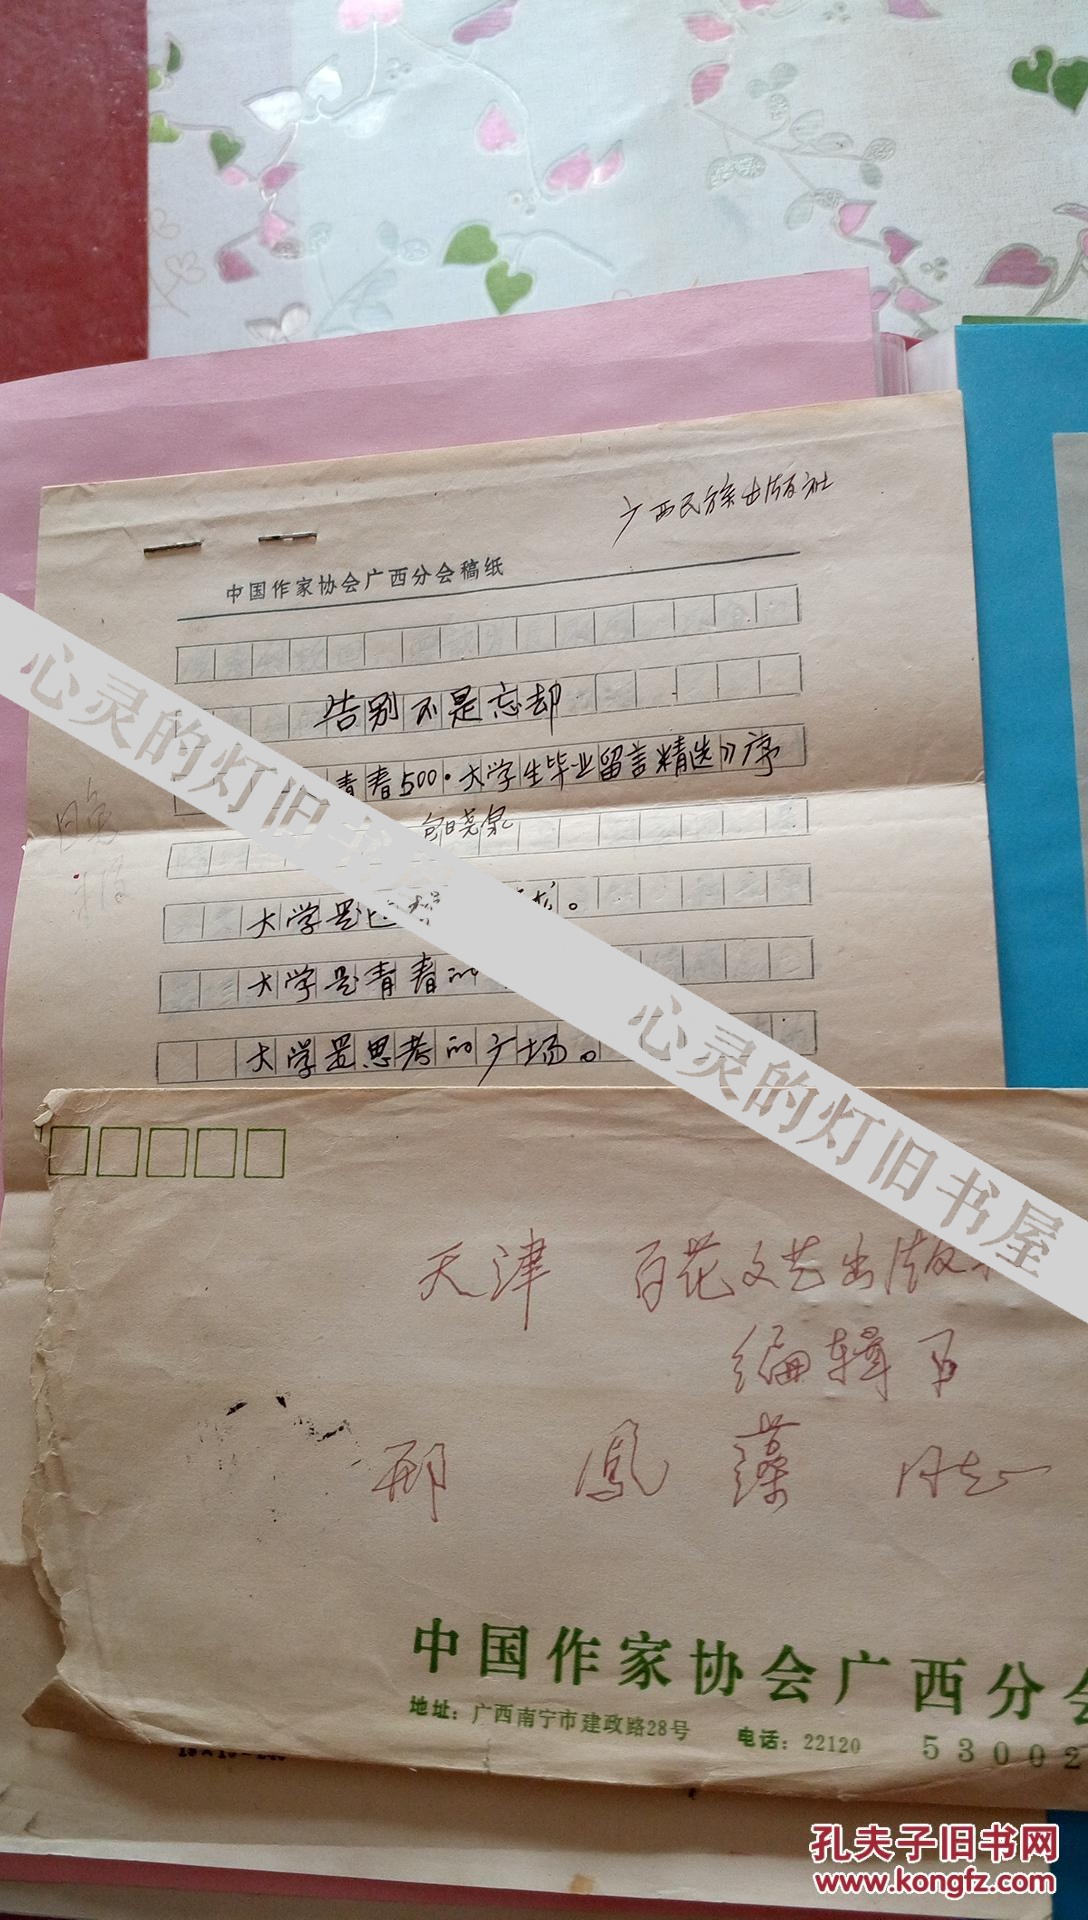 广西民族出版社
中国作家协会广西分会稿纸
告别不是忘却
青春500·大学生毕业留言精选》序
包晓泉
大学是
大学是青春的
大学是思考的广场。
心灵的灯旧书
心灵的灯旧书屋
天津 百花文艺出版
编辑部
邢凤藻 同志
中国作家协会广西分会
地址：广西南宁市建政路28号 电话：22120 53002
孔夫子旧书网
www.kongfz.com